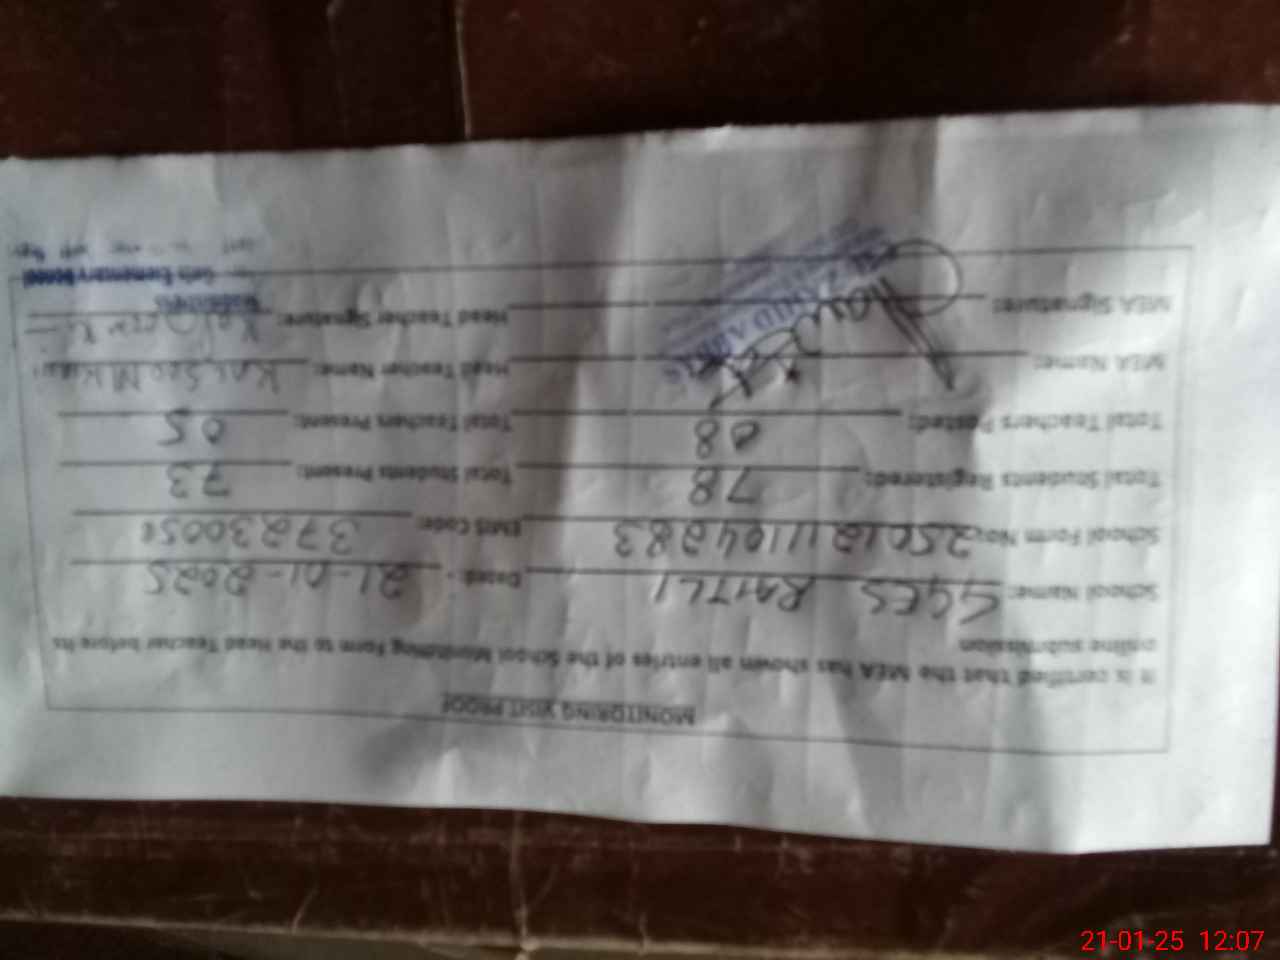 MONITORING VISIT PROOF
It is certified that the MEA has shown all entries of the School Monitoring Form to the Head Teacher before its
online submission
School Name: GGES RAITLI Dated: 21-01-2025
School Form No: 25012111104283 EMIS Code: 3723005
Total Students Registered: 78 Total Students Present: 73
Total Teachers Posted: 08 Total Teachers Present: 05
MEA Name: Head Teacher Name:
MEA Signature: Head Teacher Signature:
Girls Elementary School
21-01-25 12:07